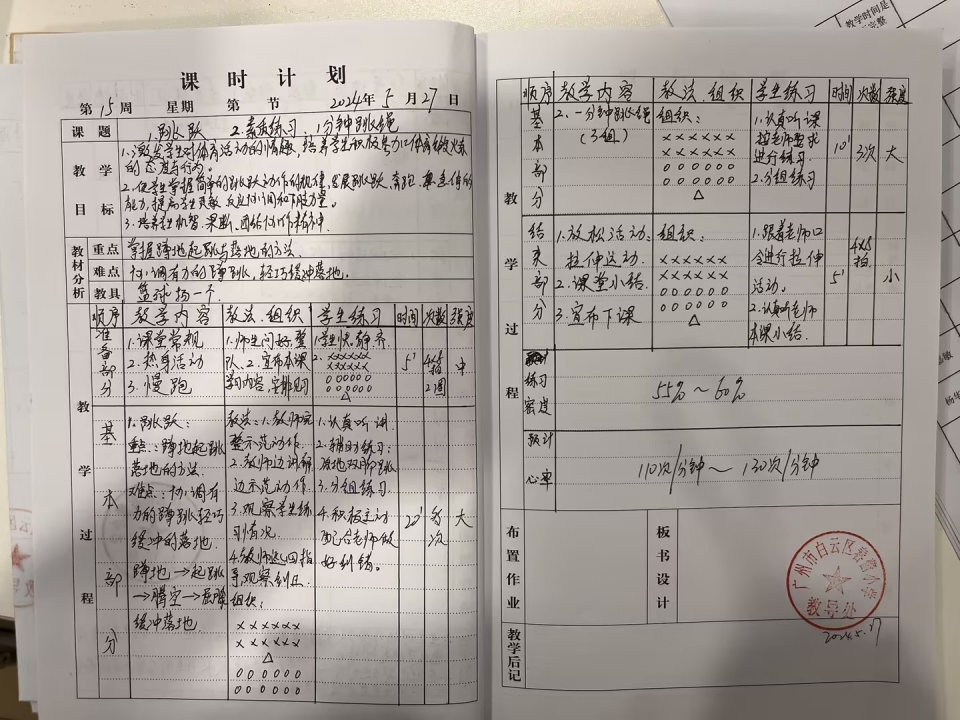 课时计划
第15周 星期 第 节 2024年5月27日
课题 1.跳跃 2.素质练习 1分钟跳绳
教学目标
1.激发学生对体育活动的情趣,培养学生积极
的态度与行为。
2.使学生掌握简单的跳跃动作的规律,发展跳跃、奔跑
能力,提高学生灵敏、反应、协调和下肢力量。
3.培养学生机智、果断、团结协作精神。
教材分析
重点 掌握蹲地起跳与落地的方法。
难点 协调有力的蹲跳,轻巧缓冲落地。
教具 篮球场一个.
顺序 教学内容 教法、组织 学生练习 时间 次数 强度
教学过程
准备部分
1.课堂常规
2.热身活动
3.慢跑
1.师生问好,整
队、2.宣布本课
学习内容,安排见习
1.学生快、静、齐
2. ××××××
××××××
○○○○○○
○○○○○○
△
5' 4×8拍 2圈 中
基本部分
1.跳跃:
重点:蹲地起跳
落地的方法.
难点:协调有
力的蹲跳轻巧
缓冲的落地.
蹲地→起跳
→腾空→屈膝
缓冲落地.
教法:1.教师完
整示范动作.
2.教师边讲解
边示范动作.
3.观察学生练
习情况.
4.教师巡回指
导观察纠正.
组织:
××××××
××××××
△
○○○○○○
○○○○○○
1.认真听讲.
2.辅助练习:
原地双脚跳
3.分组练习.
4.积极主动
配合老师做
好纠错。
20' 多次 大
顺序 教学内容 教法、组织 学生练习 时间 次数 强度
教学过程
基本部分
2.一分钟跳绳
(3组)
组织:
××××××
××××××
○○○○○○
○○○○○○
△
1.认真听课
按老师要求
进行练习.
2.分组练习
10' 3次 大
结束部分
1.放松活动:
拉伸运动.
2.课堂小结.
3.宣布下课
组织:
××××××
××××××
○○○○○○
○○○○○○
△
1.跟着老师口
令进行拉伸
活动.
2.认真听老师
本课小结.
5' 4×8拍 小
练习密度 55%~60%
预计心率 110次/分钟~130次/分钟
布置作业
板书设计
教学后记
教导处
2024.5.27
教学时间是
完整